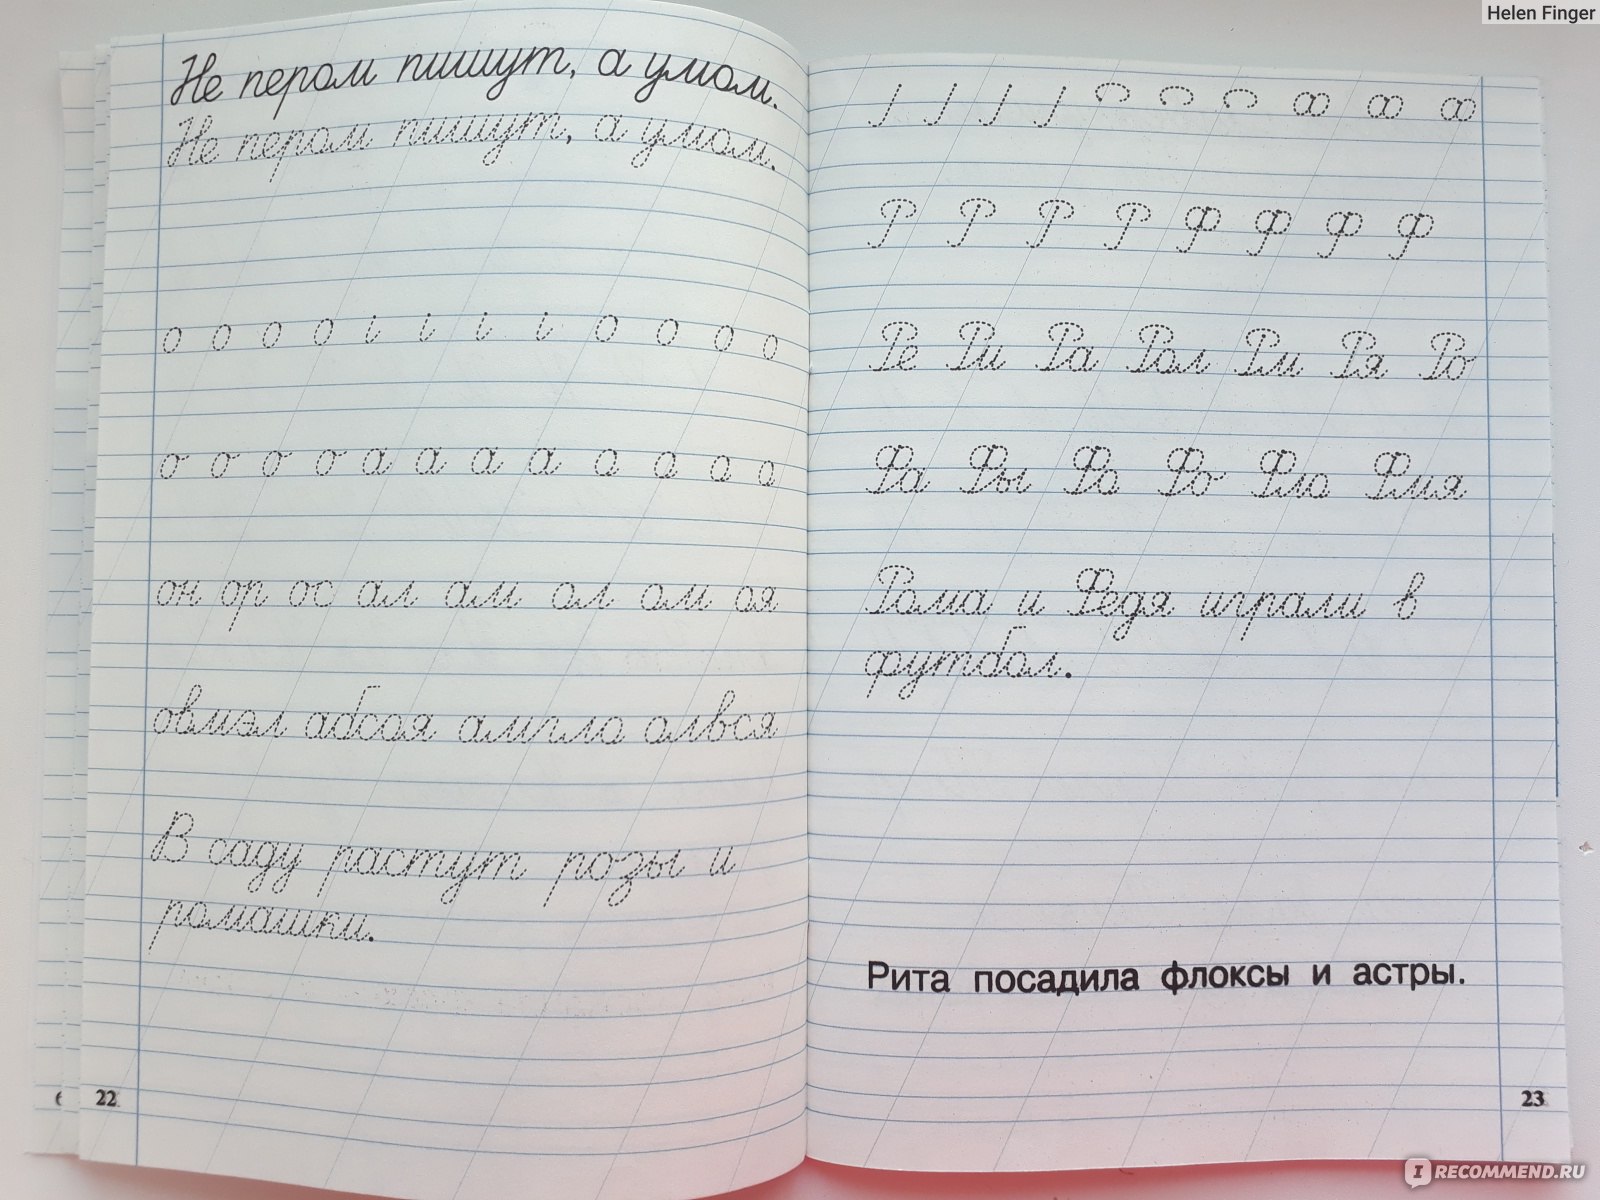 Helen Finger
Не пером пишут, а умом.
Не пером пишут, а умом.
о о о о і і і і о о о о
о о о о а а а а а а а а
он ор ос ал ам ол ом оя
овмэл абсоя амгло алвся
В саду растут розы и
ромашки.
22
Р Р Р Р Ф Ф Ф Ф
Ре Ри Ра Рол Рм Ря Ро
Фа Фы Фо Фо Флю Фмя
Рома и Федя играли в
футбол.
Рита посадила флоксы и астры.
23
6
IRECOMMEND.RU